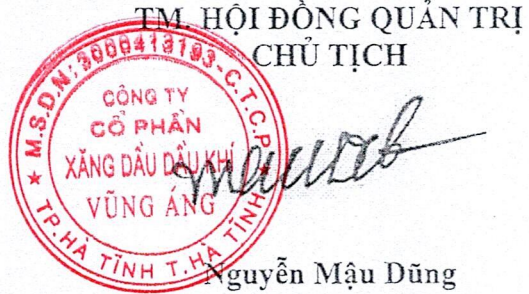 TM. HỘI ĐỒNG QUẢN TRỊ
CHỦ TỊCH
M.S.D.N: 3000413193-C.T.C.P
CÔNG TY
CỔ PHẦN
XĂNG DẦU DẦU KHÍ
VŨNG ÁNG
TP.HÀ TĨNH T.HÀ TĨNH
Nguyễn Mậu Dũng